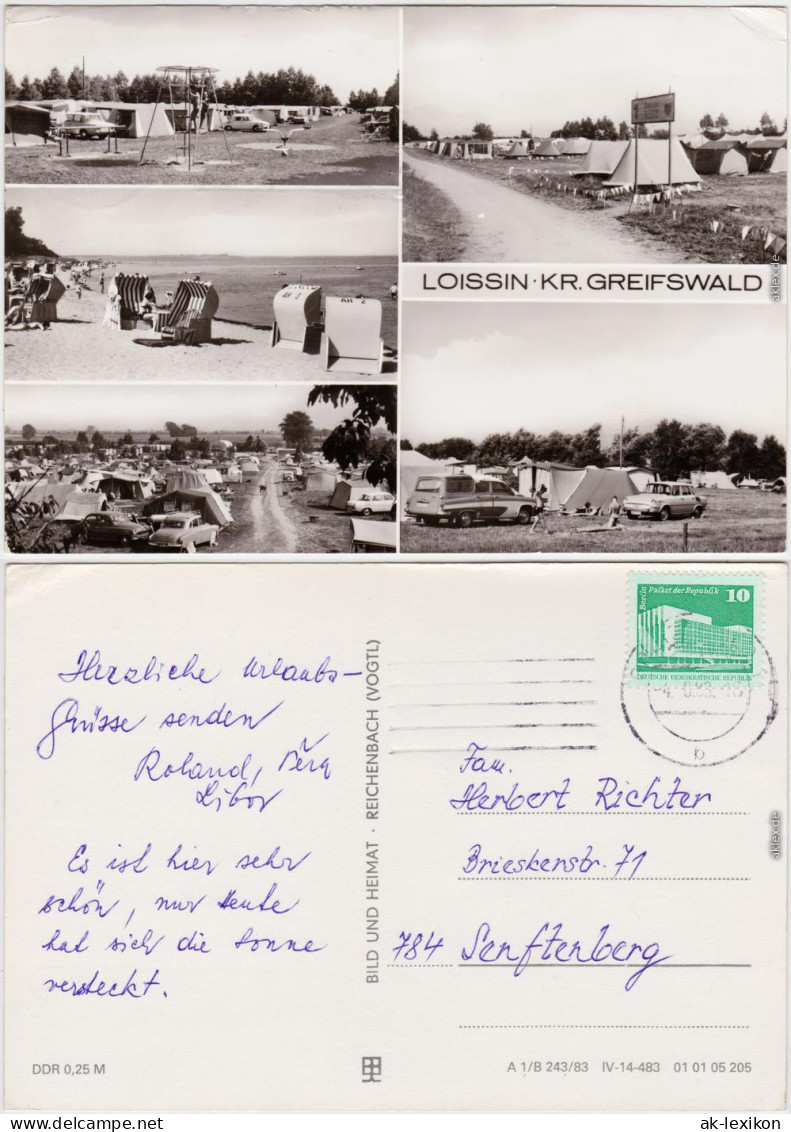 LOISSIN · KR. GREIFSWALD
aklex.de
Herzliche Urlaubs-
Grüsse senden
Roland,
Libor
Es ist hier sehr
schön, nur Heute
hat sich die Sonne
versteckt.
DDR 0,25 M
BILD UND HEIMAT · REICHENBACH (VOGTL)
Berlin
Palast der Republik
10
DEUTSCHE DEMOKRATISCHE REPUBLIK
b
Fam.
Herbert Richter
Brieskerstr. 71
784 Senftenberg
aklex.de
A 1/B 243/83 IV-14-483 01 01 05 205
ak-lexikon